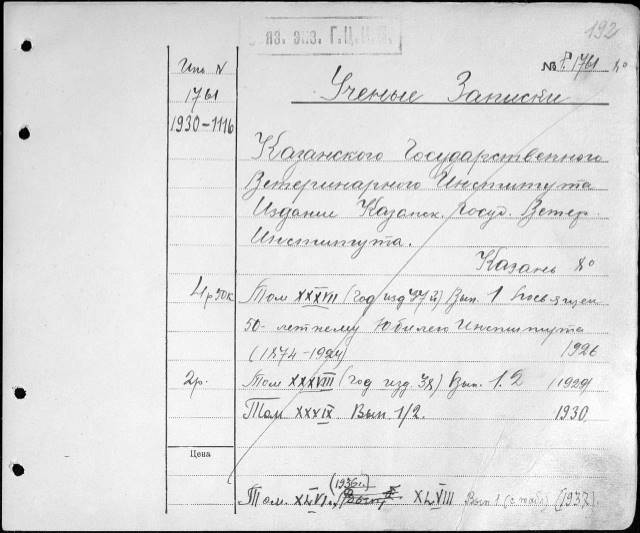 192
яз. экз. Г.Ц.К.П.
Инв N
1761
1930-1116
№ 1761 8°
Ученые Записки
Казанского Государственного
Ветеринарного Института
Издание Казанск. Госуд. Ветер.
Института.
Казань 8°
4р 50к Том XXXVII (Год изд 37й) Вып. 1 посвящен
50-летнему Юбилею Института
(1874-1924) 1926
2р. Том XXXVIII (Год изд. 38) Вып. 1.2 1929
Том XXXIX Вып 1/2. 1930
Цена
(1936г.)
Том. XLVI, XLVIII Вып 1 (с табл) (1937).